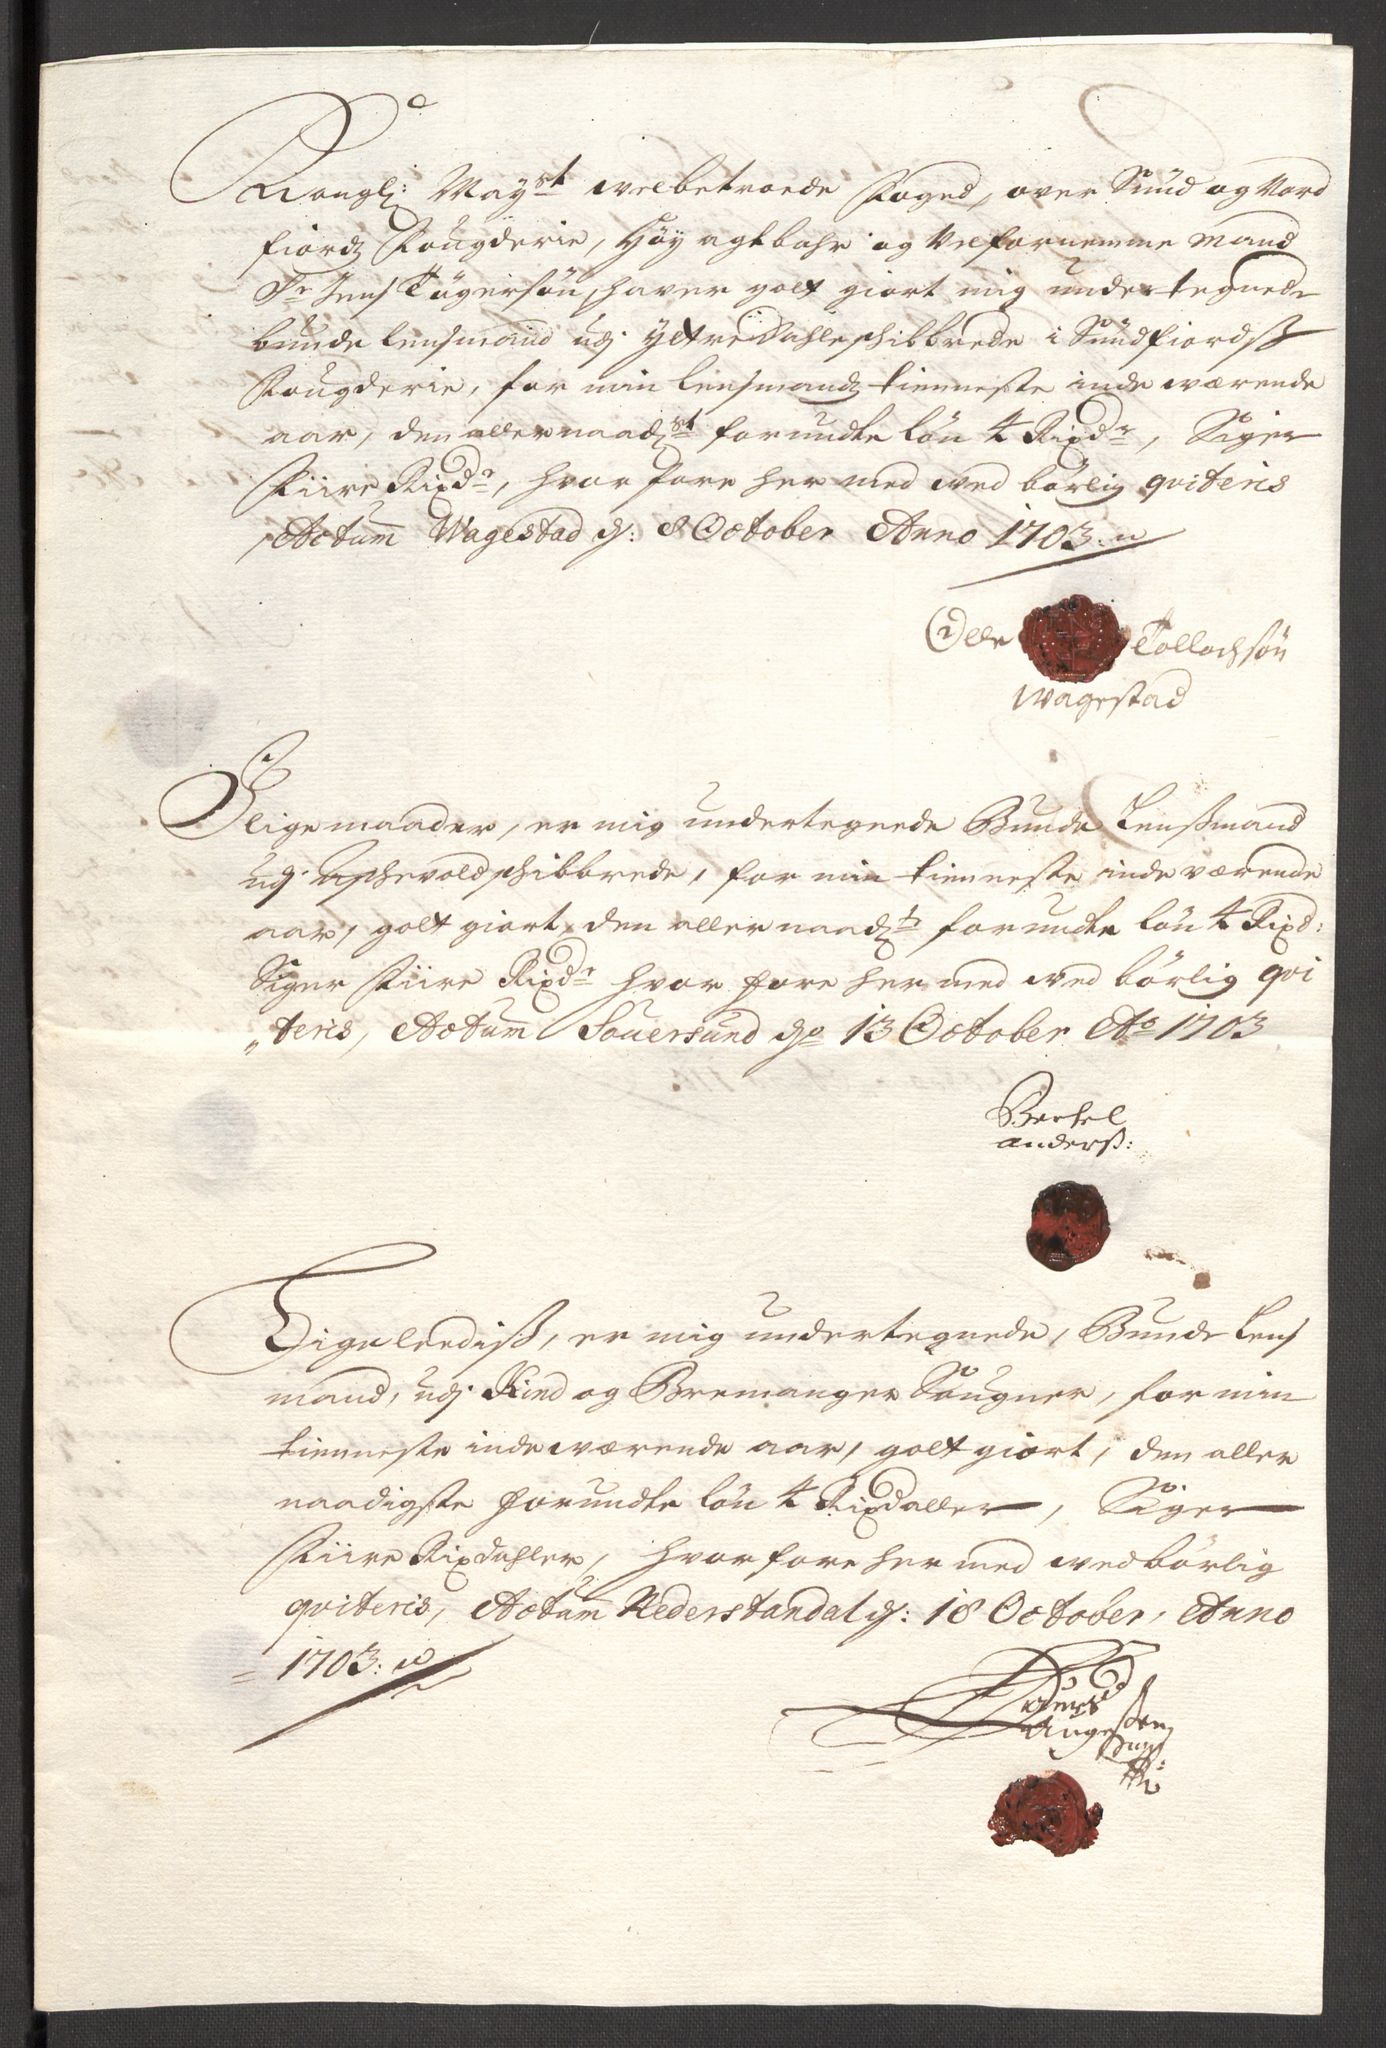 Kongl: Mayst welbetroede Foged, over Sund og Nord
fiords Fougderie, Höy agtbahr og Velfornemme Mand
Sr Jens Tögersön, haver golt giort mig undertegnede
bunde lensmand udj Yttre Dahls schibbrede i Sundfiordsß
Fougderie, for min lensmands tienneste inde wærende
aar, den allernaadst forundte lön 4 Rixdr, Siger
Fiire Rixdr, hvorfore her med wed börlig qviteris
Actum Wagestad d: 8 October Anno 1703:
Olle Tollochsön
Wagestad
I lige maader, er mig undertegnede Bunde Lensßmand
udj Aschevold schibbrede, for min tienneste inde værende
aar, golt giort, den aller naadst forundte lön 4 Rixd:
Siger Fiire Rixdr hvor fore her med wed börlig qvi
„teris, Actum Sauersund do 13 October Ao 1703
Bertel
Andersß:
Ligeleedisß, er mig undertegnede, Bunde Lens
mand, udj Kind og Bremanger Sougner, for min
tienneste inde wærende aar, golt giort, den aller
naadigste forundte lön 4 Rixdaller, Siger
Fiire Rixdahler, hvorfore her med wedbörlig
qviteris, Actum Rederstandal d: 18 October, Anno
1703: